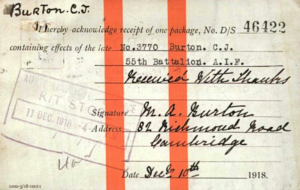 Burton. C.J.
I hereby acknowledge receipt of one package, No. D/S 46422
containing effects of the late No.3770 Burton. C.J.
55th Battalion. A.I.F.
Received With Thanks
KIT STORE
11 DEC. 1918
Signature M. A. Burton
Address 82 Richmond Road
Cambridge
Date Dec 10th 1918.